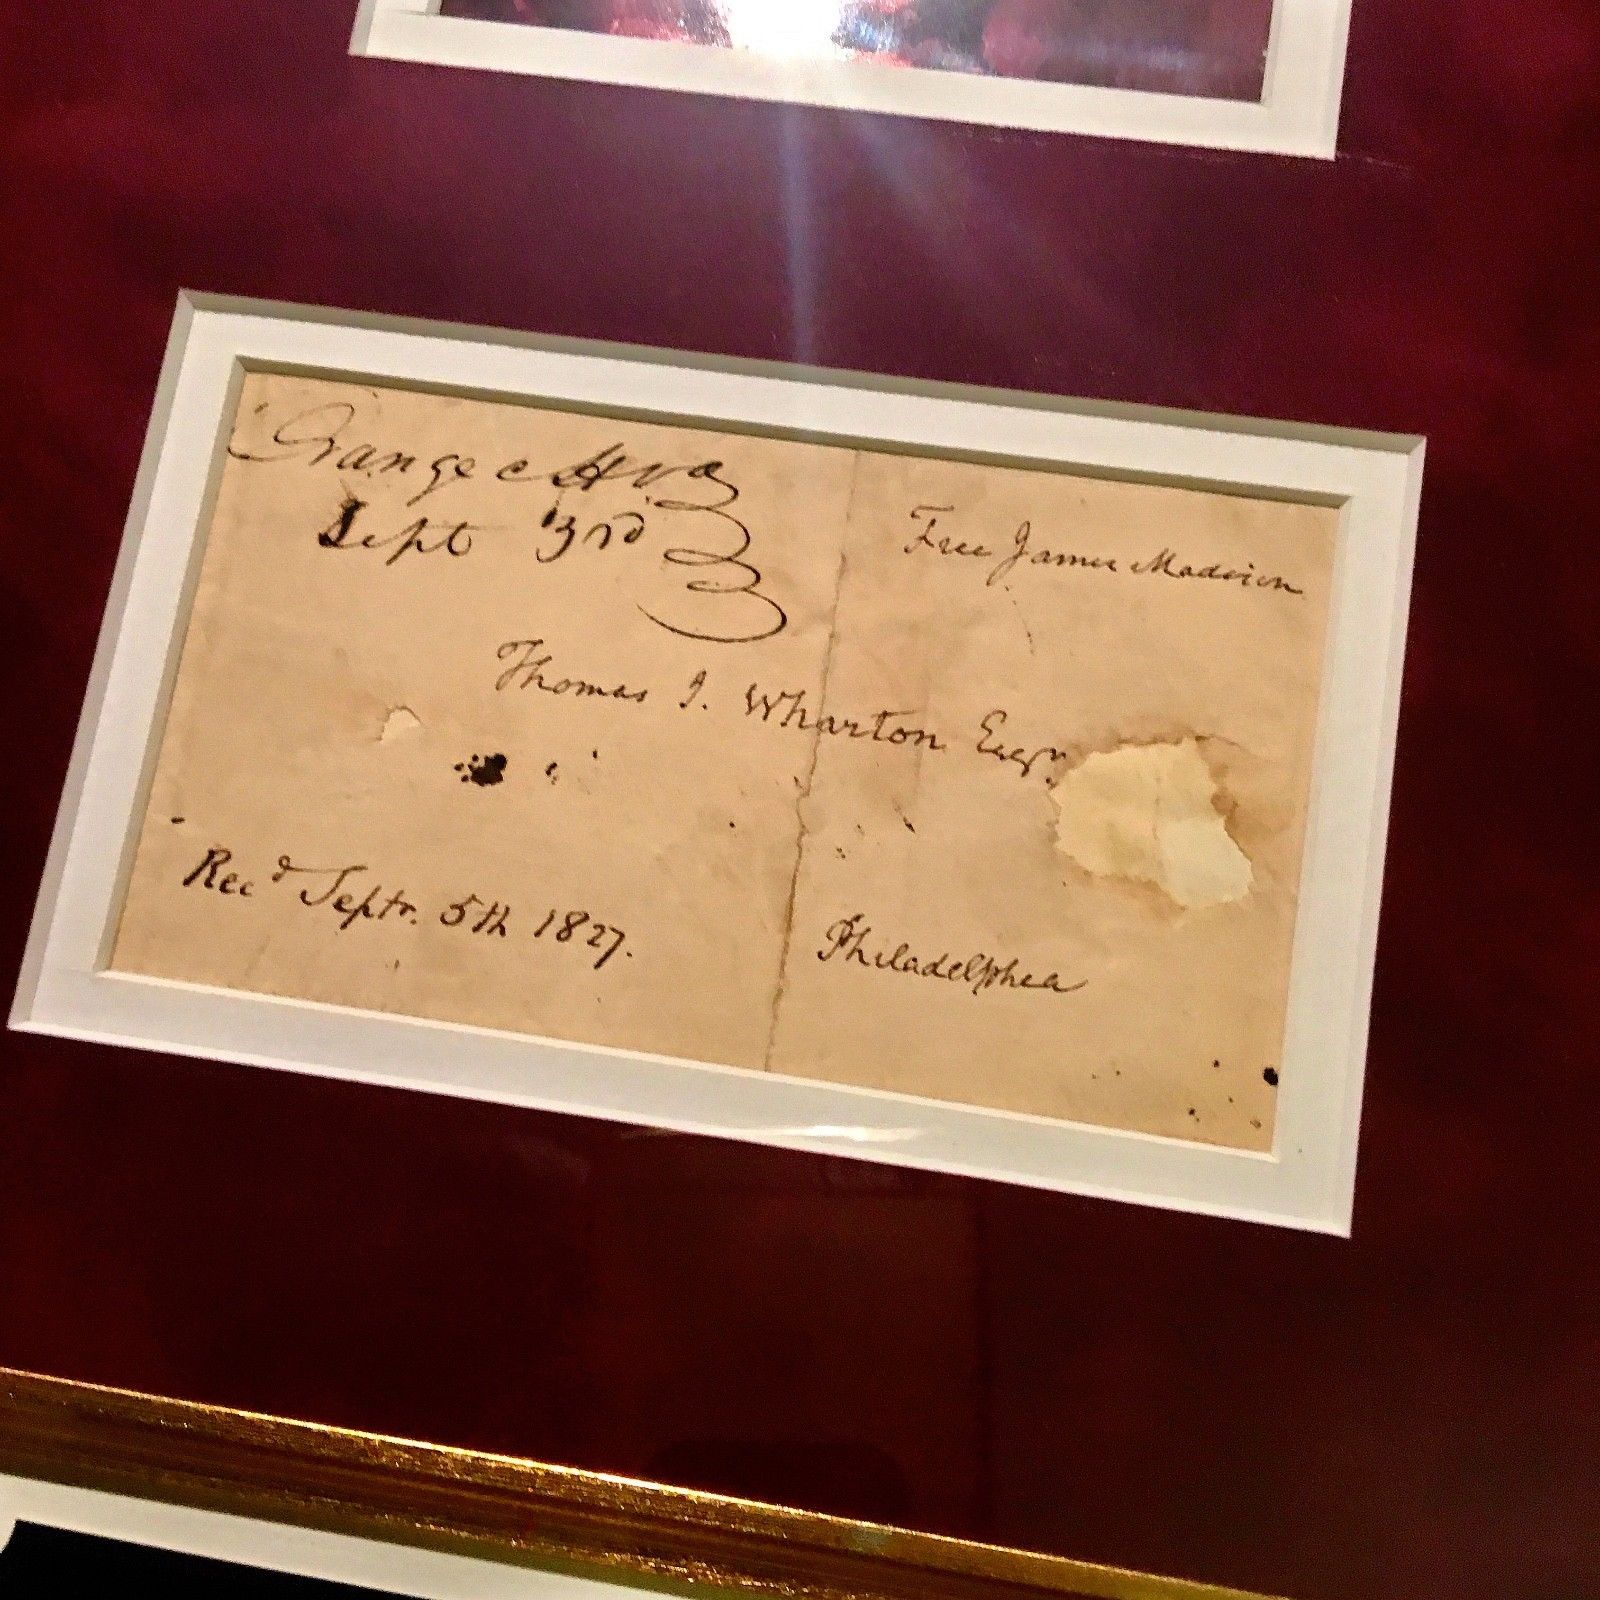 Orange c H va
Sept 3rd
Free James Madison
Thomas I. Wharton Esqr.
Recd Septr. 5th 1827.
Philadelphea